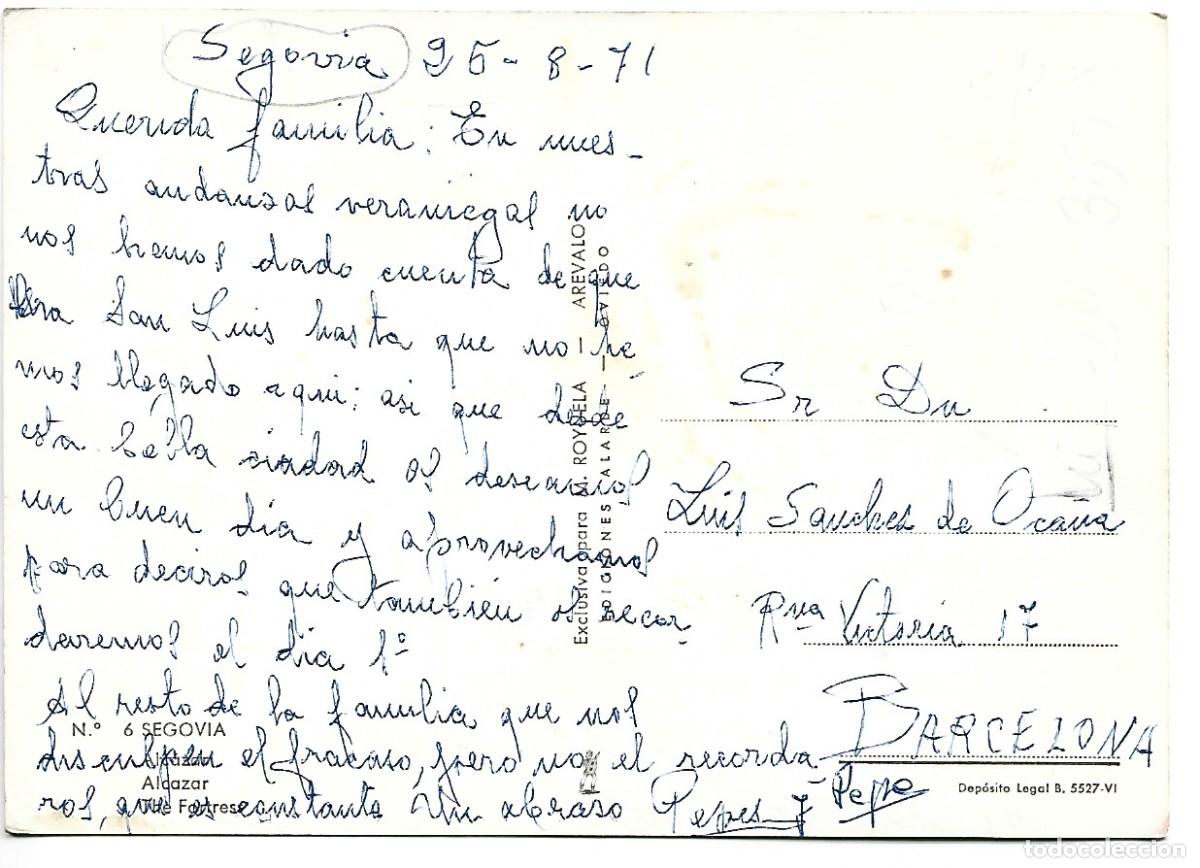 Segovia 25-8-71
Querida familia: En nues-
tras andanzas veraniegas no
nos hemos dado cuenta de que
era San Luis hasta que no he-
mos llegado aqui: asi que desde
esta bella ciudad os deseamos
un buen dia y aprovechamos
para deciros que también os recor
daremos el dia 1º
Al resto de la familia que nos
disculpen el fracaso, pero no el recorda-
ros, que es constante Un abraso Pepes y Pepe
Sr Dn
Luis Sanches de Ocaña
Rua Victoria 17
BARCELONA
N.º 6 SEGOVIA
Alcázar
Alcazar
The Fortress
Exclusiva para M. ROYUELA — AREVALO
DIGNONES VALARDE — OVIEDO
Depósito Legal B. 5527-VI
todocoleccion